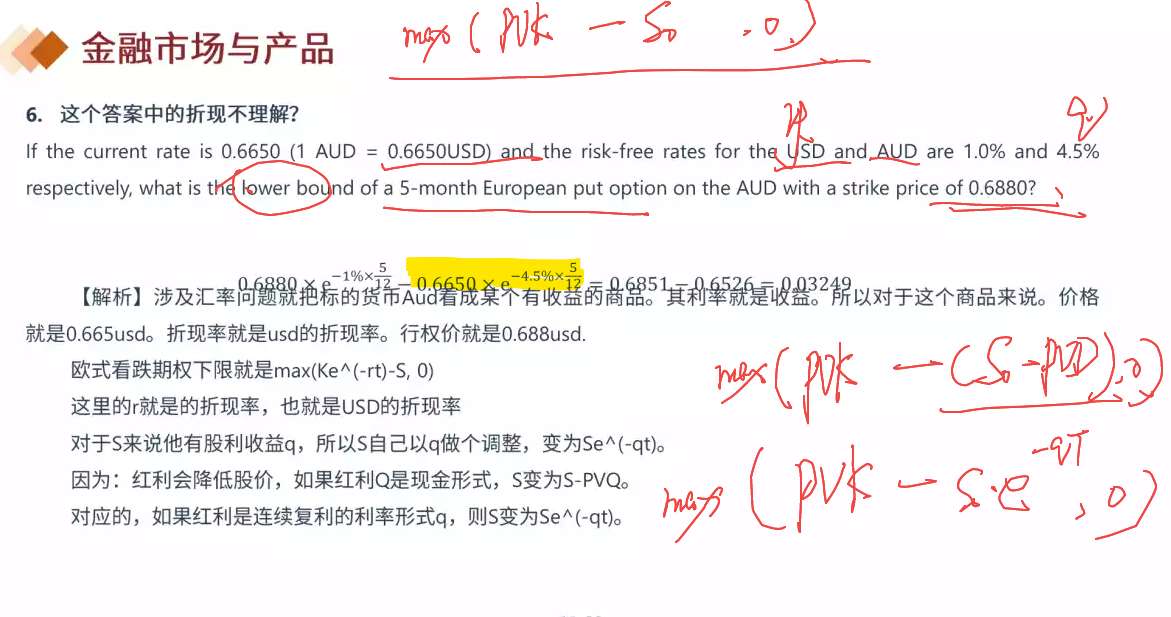 max(PVK - S₀, 0)
金融市场与产品
6. 这个答案中的折现不理解?
R
q
If the current rate is 0.6650 (1 AUD = 0.6650USD) and the risk-free rates for the USD and AUD are 1.0% and 4.5%
respectively, what is the lower bound of a 5-month European put option on the AUD with a strike price of 0.6880?
0.6880 × e^{-1%×5/12} - 0.6650 × e^{-4.5%×5/12} = 0.6851 - 0.6526 = 0.03249
【解析】涉及汇率问题就把标的货币Aud看成某个有收益的商品。其利率就是收益。所以对于这个商品来说。价格
就是0.665usd。折现率就是usd的折现率。行权价就是0.688usd.
欧式看跌期权下限就是max(Ke^(-rt)-S, 0)
max(PVK - (S₀ - PVD), 0)
这里的r就是的折现率，也就是USD的折现率
对于S来说他有股利收益q，所以S自己以q做个调整，变为Se^(-qt)。
因为：红利会降低股价，如果红利Q是现金形式，S变为S-PVQ。
max(PVK - S·e^{-qT}, 0)
对应的，如果红利是连续复利的利率形式q，则S变为Se^(-qt)。